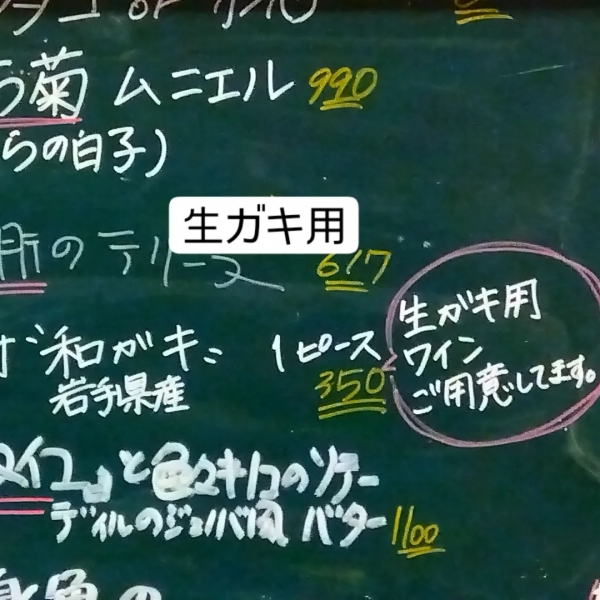 菊 ムニエル 990
らの白子)
生ガキ用
のテリーヌ 617
和ガキ 1ピース
岩手県産 350
生ガキ用
ワイン
ご用意してます。
と色々キノコのソテー
ディルのジェノバ風 バター 1100